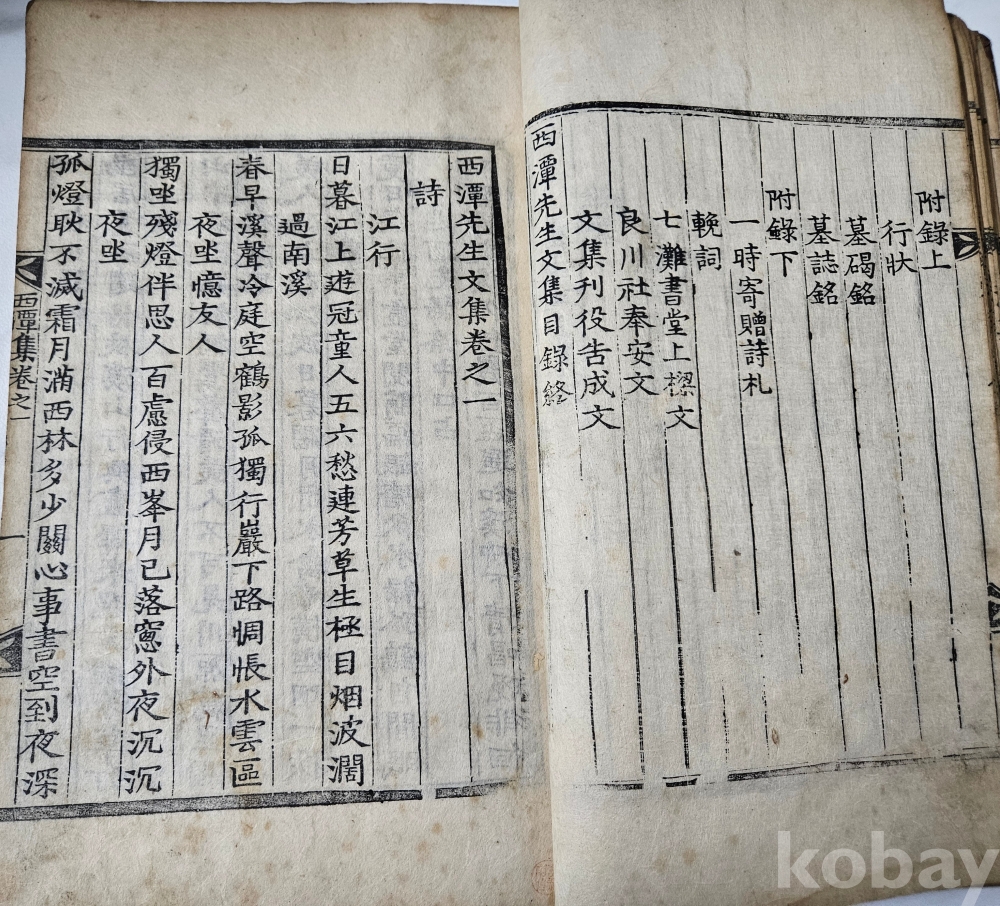 附錄上
行狀
墓碣銘
墓誌銘
附錄下
一時寄贈詩札
輓詞
七灘書堂上樑文
良川社奉安文
文集刊役告成文
西潭先生文集目錄終
西潭先生文集卷之一
詩
江行
日暮江上遊冠童人五六愁連芳草生極目烟波濶
過南溪
春早溪聲冷庭空鶴影孤獨行巖下路惆悵水雲區
夜坐憶友人
獨坐殘燈伴思人百慮侵西峯月已落窻外夜沉沉
夜坐
孤燈耿不滅霜月滿西林多少關心事書空到夜深
西潭集卷之一
一
kobay